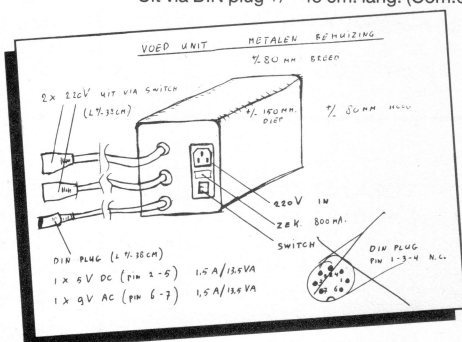 Uit via DIN plug +/- 40 cm. lang.
VOED UNIT METALEN BEHUIZING
+/- 80 MM BREED
2 x 220V UIT VIA SWITCH
(L +/- 38CM)
+/- 150 MM. DIEP
+/- 80 MM HOOG
220V IN
ZEK. 800 MA.
SWITCH
DIN PLUG (L +/- 38CM)
1 x 5V DC (PIN 2-5) 1,5 A/13,5VA
1 x 9V AC (PIN 6-7) 1,5 A/13,5VA
DIN PLUG
PIN 1-3-4 N.C.